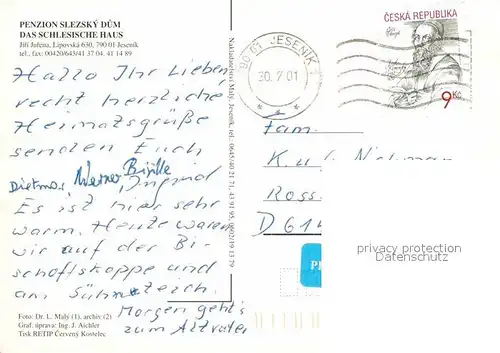 PENZION SLEZSKÝ DŮM
DAS SCHLESISCHE HAUS
Jiří Juřena, Lipovská 630, 790 01 Jeseník
tel., fax: 00420/645/41 37 04, 41 14 89
Hallo Ihr Lieben
recht herzliche
Heimatsgrüße
senden Euch
Dietmar, Werner Brigitte
Ingrid
Es ist hier sehr
warm. Heute waren
wir auf der Bi-
schofskoppe und
am Sühneteich.
Morgen geht's
zum Altvater
Foto: Dr. L. Malý (1), archiv (2)
Graf. úprava: Ing. J. Aichler
Tisk RETIP Červený Kostelec
Nakladatelství Malý, Jeseník, tel. 0645/40 21 71, 43 91 95, 0602/19 13 79
790 01 JESENÍK 1
30. 7. 01
ČESKÁ REPUBLIKA
9 Kč
Fam.
K. u. I.
Ross
D 614
privacy protection
Datenschutz